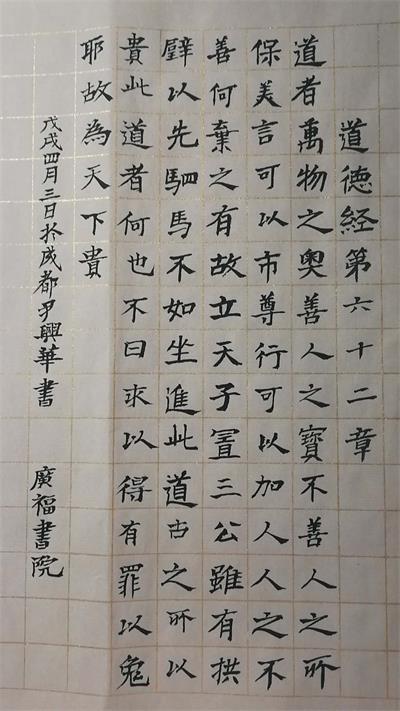 道德經第六十二章
道者萬物之奧善人之寶不善人之所
保美言可以市尊行可以加人人之不
善何棄之有故立天子置三公雖有拱
璧以先駟馬不如坐進此道古之所以
貴此道者何也不曰求以得有罪以免
耶故為天下貴
戊戌四月三日於成都尹興華書 廣福書院